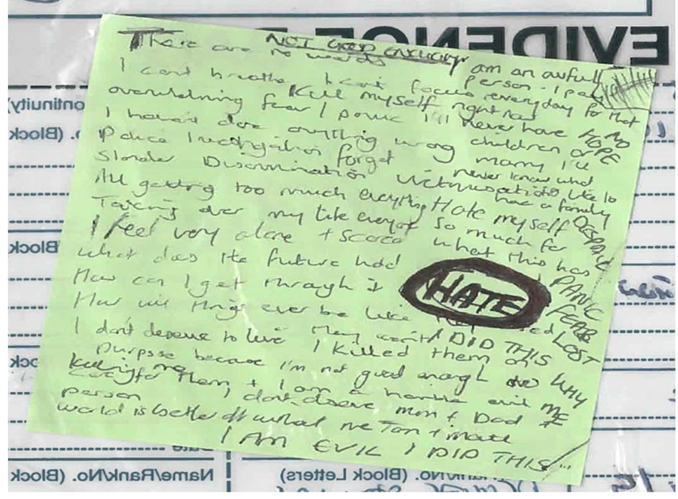 NOT GOOD ENOUGH
There are no words
I am an awful person - I pay every day for that
I cant breathe I cant focus
Kill myself right now
overwhelming fear / panic
I'll never have
NO HOPE
children or marry I'll never know what
it's like to have a family
I haven't done anything wrong
Police investigation forget
Slander Discrimination Victimisation
All getting too much everything
Hate myself so much for
what this has
DESPAIR
PANIC
FEAR
LOST
Taking over my life
I feel very alone + scared
What does the future hold
How can I get through it
HATE
How will things ever be like
I DID THIS
WHY ME
I dont deserve to live
I killed them on
purpose because I'm not good enough
to care for them + I am a horrible evil
person
I dont deserve Mum + Dad
world is better off without me
I AM EVIL I DID THIS
Name/Rank/No. (Block Letters)